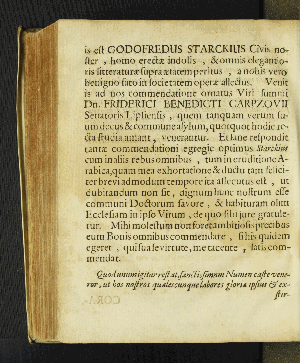 is est GODOFREDUS STARCKIUS Civis no-
ster, homo erectæ indolis, & omnis elegantio-
ris litteraturæ supra ætatem peritus, a nobis vero
benigno fato in societatem operæ allectus. Venit
is ad nos commendatione ornatus Viri summi
Dn. FRIDERICI BENEDICTI CARPZOVII
Senatoris Lipsiensis, quem tanquam verum su-
um decus & commune asylum, quotquot hodie re-
cta studia amant, venerantur. Et sane respondit
tantæ commendationi egregie optimus Starckius
cum in aliis rebus omnibus, tum in eruditione A-
rabica, quam mea exhortatione & ductu tam felici-
ter brevi admodum tempore ita assecutus est, ut
dubitandum non sit, dignum hunc nostrum esse
communi Doctorum favore, & habituram olim
Ecclesiam in ipso Virum, de quo sibi jure gratule-
tur. Mihi molestum non foret ambitiosis precibus
eum Bonis omnibus commendare, si his quidem
egeret, qui sua se virtute, me tacente, satis com-
mendat.
Quod unum igitur restat, sanctissimum Numen caste vene-
ror, ut hos nostros qualescunque labores gloriæ ipsius & ex-
stir-